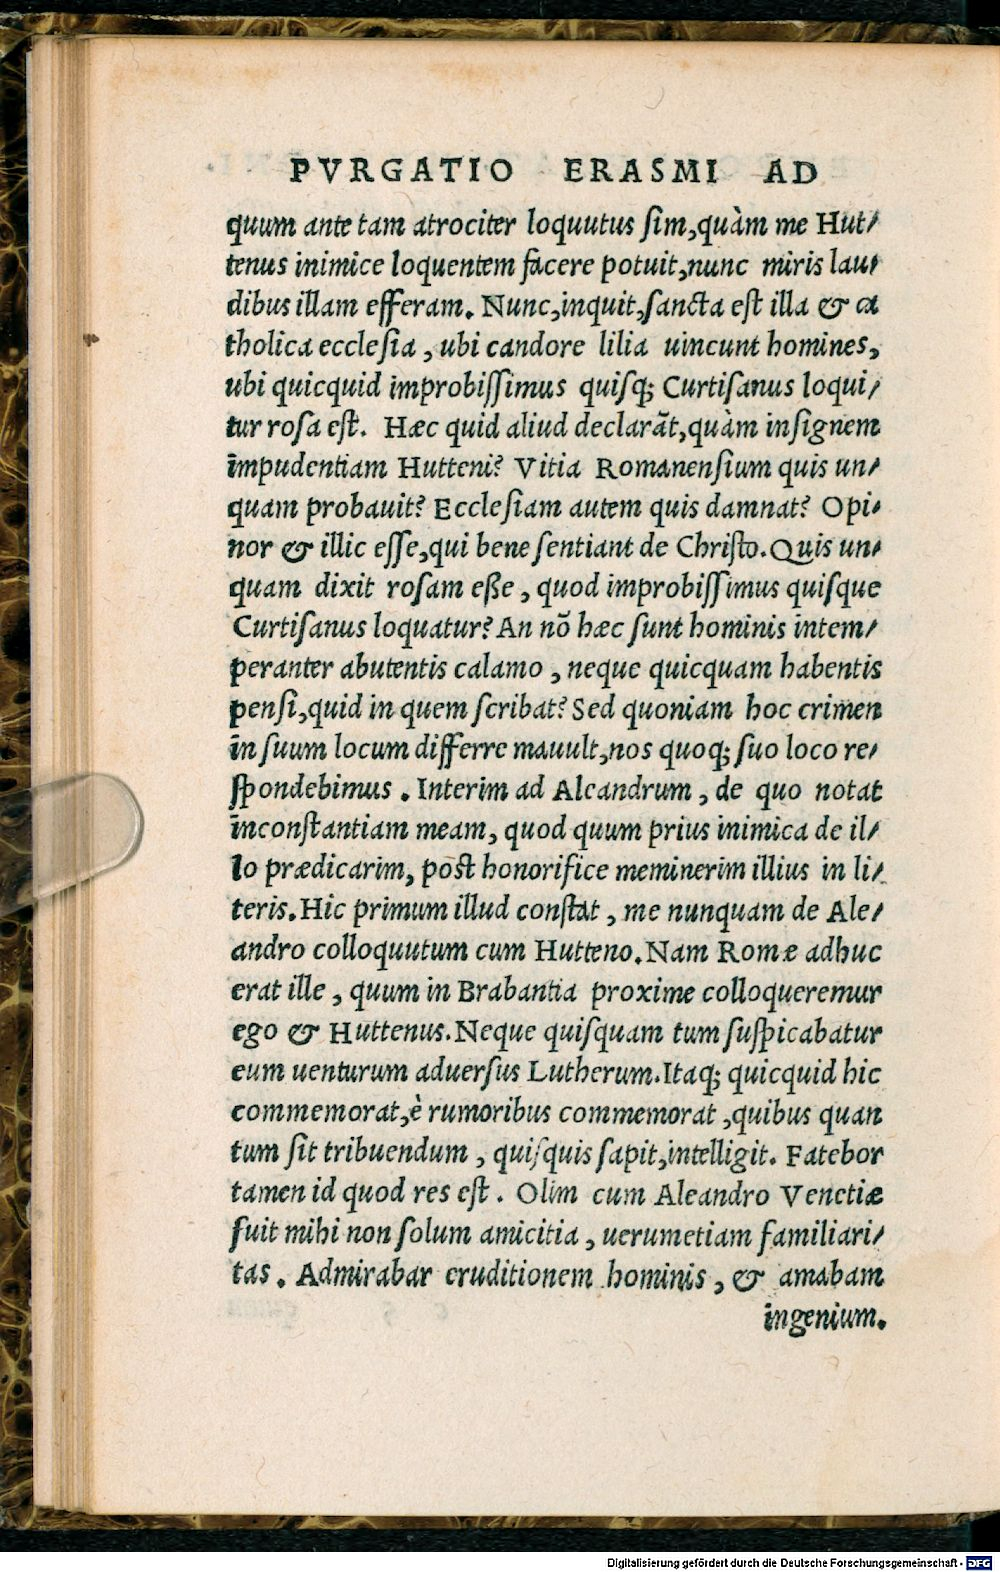 PVRGATIO ERASMI AD
quum ante tam atrociter loquutus sim,quàm me Hut-
tenus inimice loquentem facere potuit,nunc miris lau-
dibus illam efferam. Nunc,inquit,sancta est illa & ca
tholica ecclesia , ubi candore lilia uincunt homines,
ubi quicquid improbissimus quisq; Curtisanus loqui-
tur rosa est. Hæc quid aliud declarãt,quàm insignem
impudentiam Hutteni? Vitia Romanensium quis un-
quam probauit? Ecclesiam autem quis damnat? Opi-
nor & illic esse,qui bene sentiant de Christo. Quis un-
quam dixit rosam eße , quod improbissimus quisque
Curtisanus loquatur? An nõ hæc sunt hominis intem-
peranter abutentis calamo , neque quicquam habentis
pensi,quid in quem scribat? Sed quoniam hoc crimen
in suum locum differre mauult,nos quoq; suo loco re-
spondebimus . Interim ad Aleandrum , de quo notat
inconstantiam meam, quod quum prius inimica de il-
lo prædicarim, post honorifice meminerim illius in li-
teris. Hic primum illud constat , me nunquam de Ale-
andro colloquutum cum Hutteno. Nam Romæ adhuc
erat ille , quum in Brabantia proxime colloqueremur
ego & Huttenus. Neque quisquam tum suspicabatur
eum uenturum aduersus Lutherum. Itaq; quicquid hic
commemorat,è rumoribus commemorat ,quibus quan
tum sit tribuendum , quisquis sapit,intelligit. Fatebor
tamen id quod res est . Olim cum Aleandro Venetiæ
fuit mihi non solum amicitia , uerumetiam familiari-
tas . Admirabar eruditionem hominis , & amabam
ingenium.
Digitalisierung gefördert durch die Deutsche Forschungsgemeinschaft - DFG